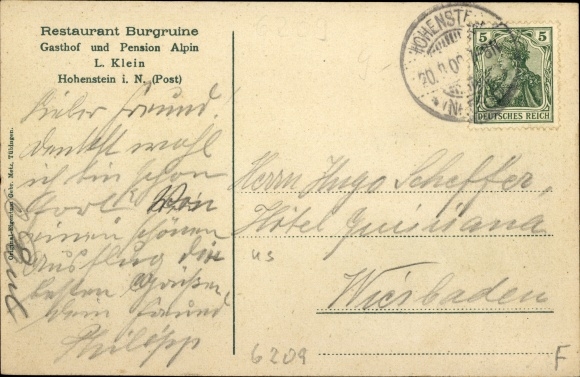 Restaurant Burgruine
Gasthof und Pension Alpin
L. Klein
Hohenstein i. N. (Post)
Lieber Freund.
Denkst wohl
ich bin schon
fort. Von
einem schönen
Ausflug die
besten Grüße
dein Freund
Philipp
Original-Eigentum Gebr. Metz, Tübingen.
HOHENSTEIN
20.
5 5
DEUTSCHES REICH
Herrn Hugo Scheffer,
Hôtel Quisisana
us
Wiesbaden
6209
F